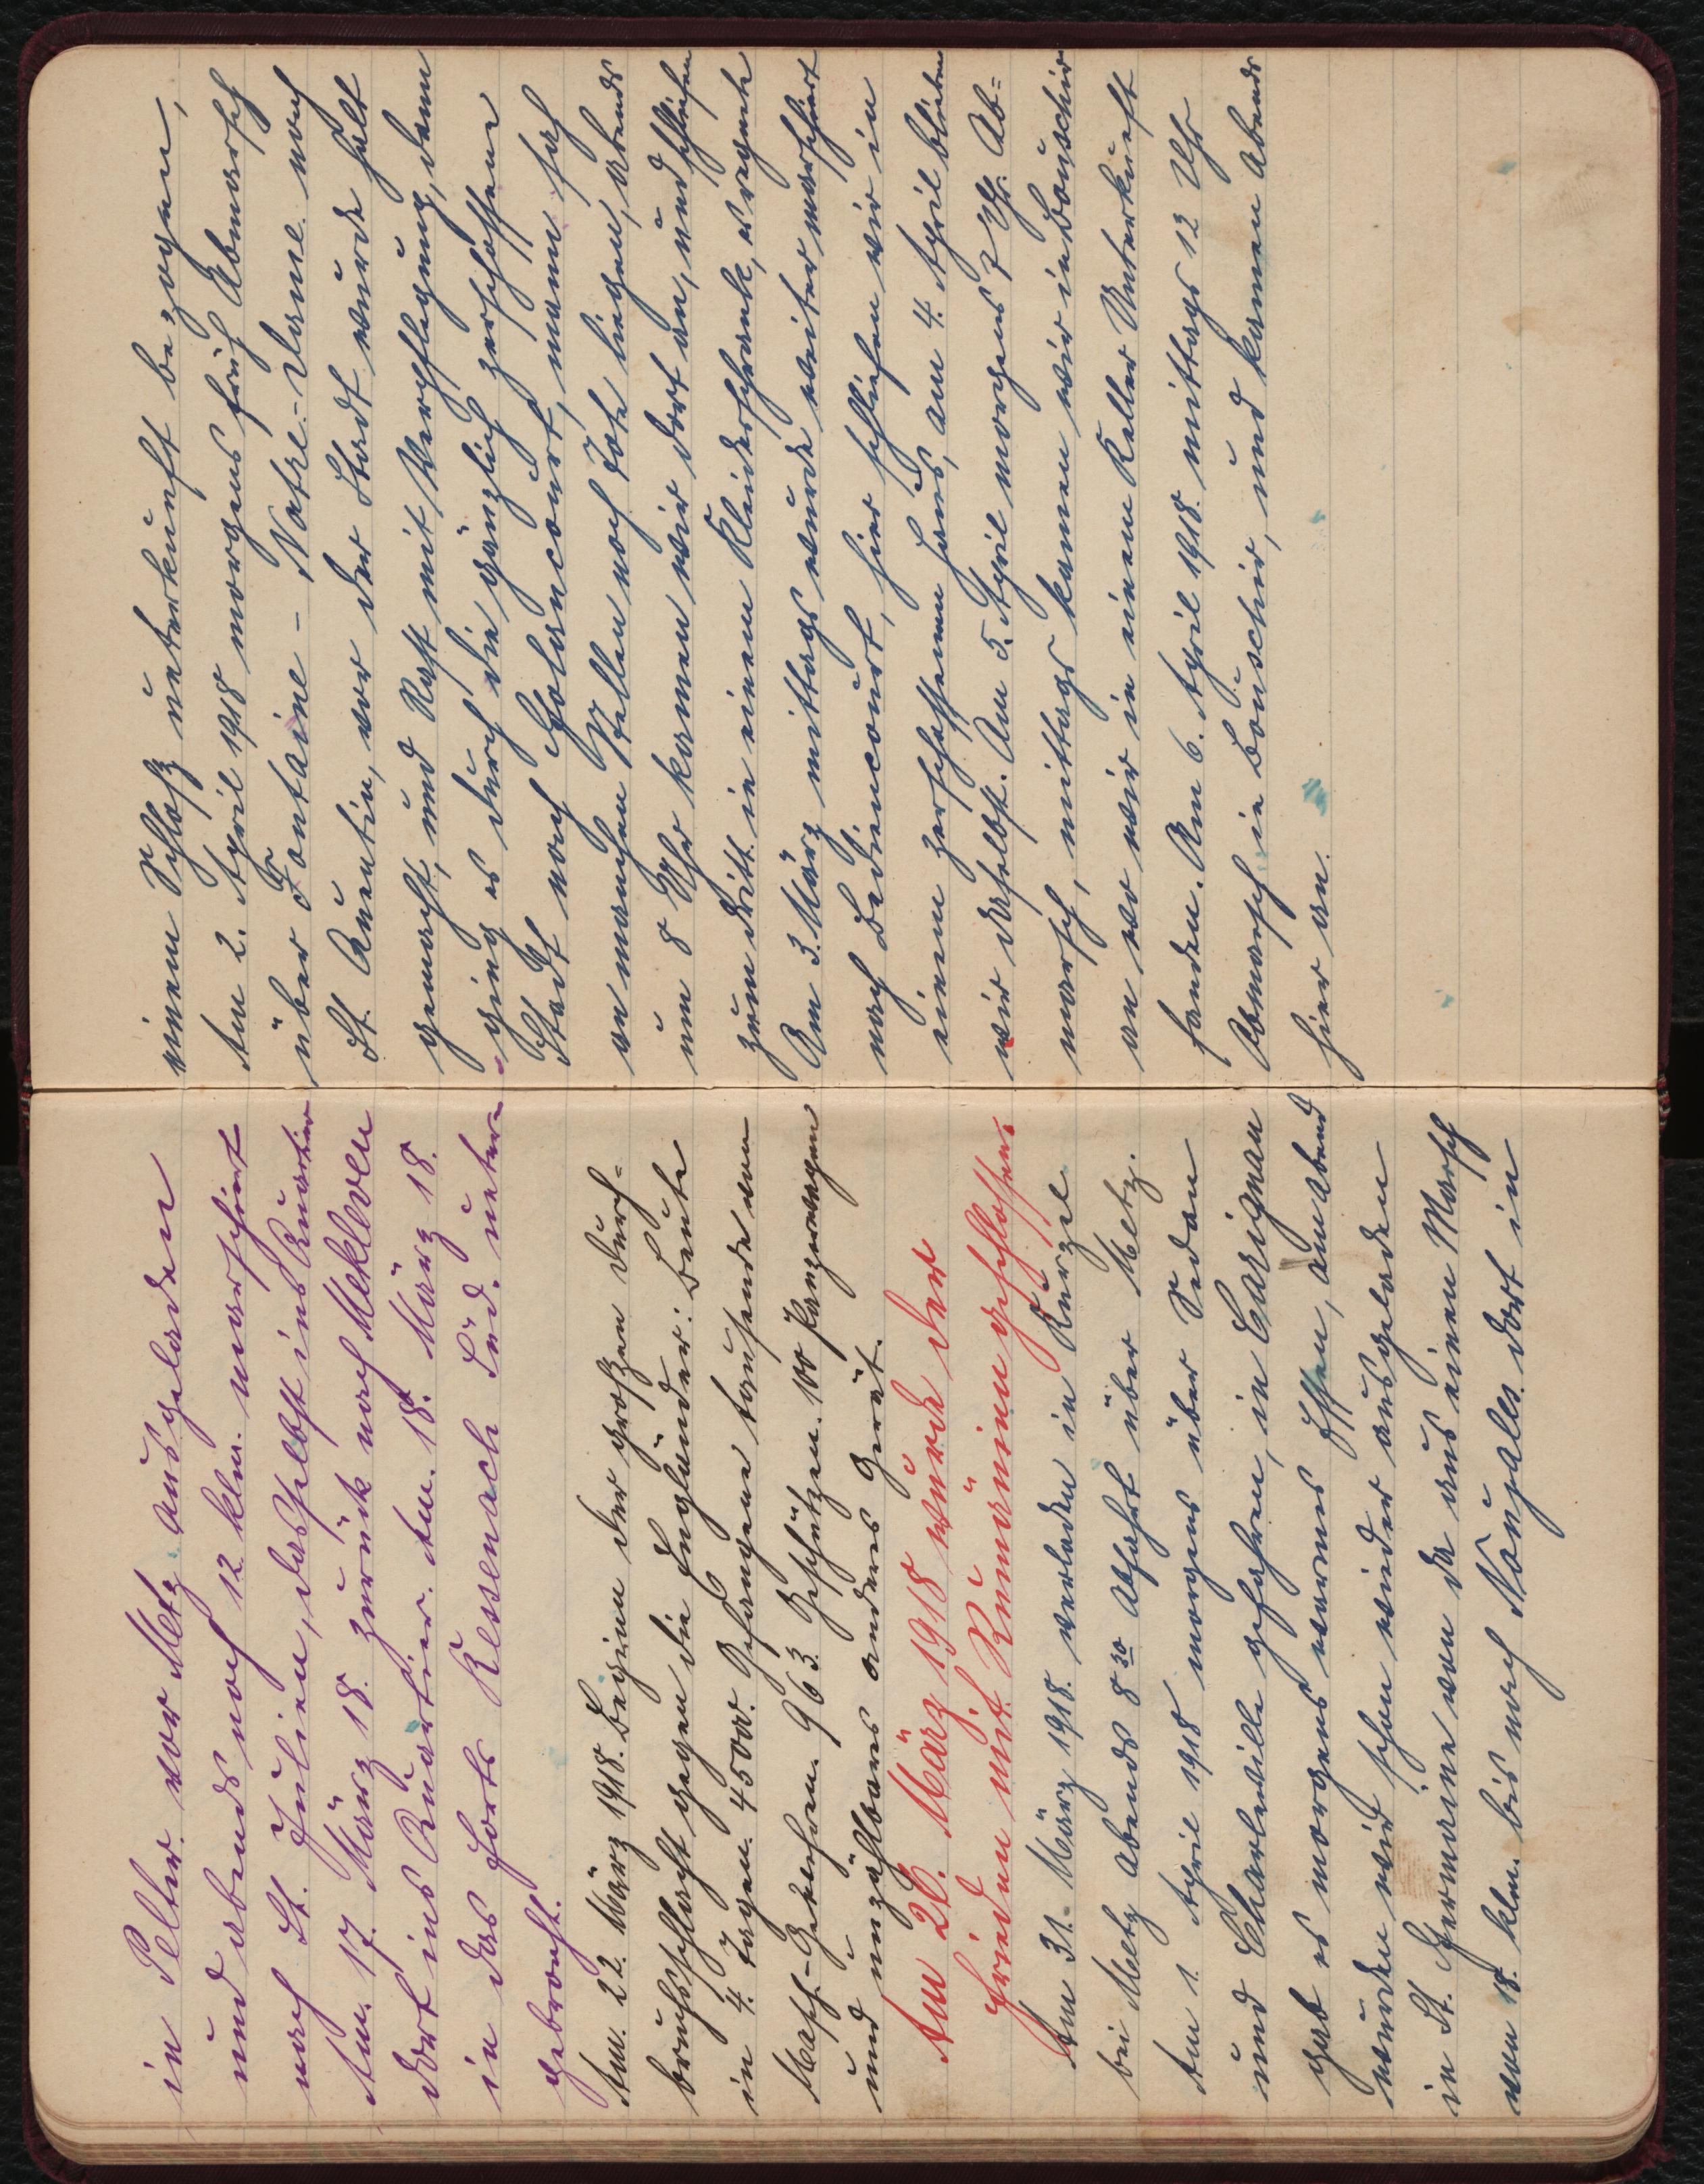 in Peltre vor Metz ausgeladen
und abends noch 12 klm. marschiert
nach St. Julien, daselbst ins Quartier
Am. 17. März 18. zurük nach Mekleven
dort ins Quartier. Am. 18. März 18.
in das Forts Kessenach Lüd. unter
gebracht.
Am. 22. März 1918. Beginn der großen Durch-
bruchsschlacht gegen die Engländer: Beute
in 4. Tagen. 45000. Gefangene tausende von
Masch-Gewehren. 963. Geschützen. 100 Panzerwagen
und unzählbares anderes Gerät.
Am 26. März 1918 wurde der
Frieden mit Rumänien geschlossen.
Am 31. März 1918. verladen in Kurzel
bei Metz abends 8 30 Abfahrt über Metz.
Am 1. April 1918 morgens über Sedan
und Charleville gefahren, in Carignan
gab es morgens warmes Essen, am Abend
wurden wir schon wieder ausgeladen
in St. Germaine von da aus einen Marsch
von 18. klm. bis nach dort in
einem Schloß unterkunft bezogen,
Am 2. April 1918 morgens früh Abmarsch
über Fontaine - Notre-Dame nach
St. Quentin, vor der Stadt wurde halt
gemacht, und Rast mit Verpflegung, dann
ging es durch die gänzlich zerschossene
Stadt nach Holancourt, man sah
an manchen Stellen noch Tote liegen, abends
um 8 Uhr kamen wir dort an, und schliefen
zum dritt in einem Kleiderschrank, es regnete
Am 3. März mittags wurde weiter marschiert
nach Bedincourt, hier schliefen wir in
einem zerschossenen Haus, am 4. April blieben
wir daselbst. Am 5. April morgens 7 Uhr. Ab-
marsch, mittags kamen wir in Bouschir
an wo wir in einem Keller Unterkunft
fanden. Am 6. April 1918. mittags 12 Uhr
Abmarsch in Bouschir, und kamen Abends
hier an.